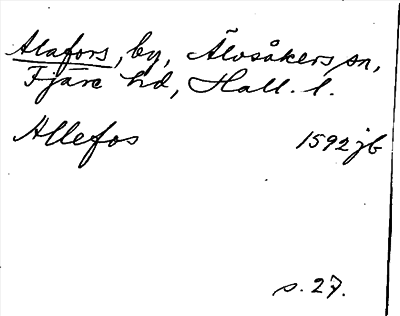 Alafors, by, Älvsåkers sn,
Fjäre hd, Hall. l.
Allefos 1592 jb
s. 27.